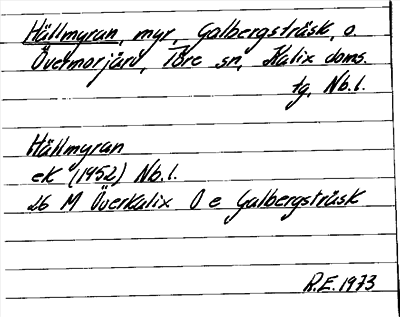 Hällmyran, myr, Galbergsträsk, o.
Övermorjärv, Töre sn, Kalix doms.
tg, Nb.l.
Hällmyran
ek (1952) Nb.l.
26 M Överkalix O e Galbergsträsk
R.E. 1973